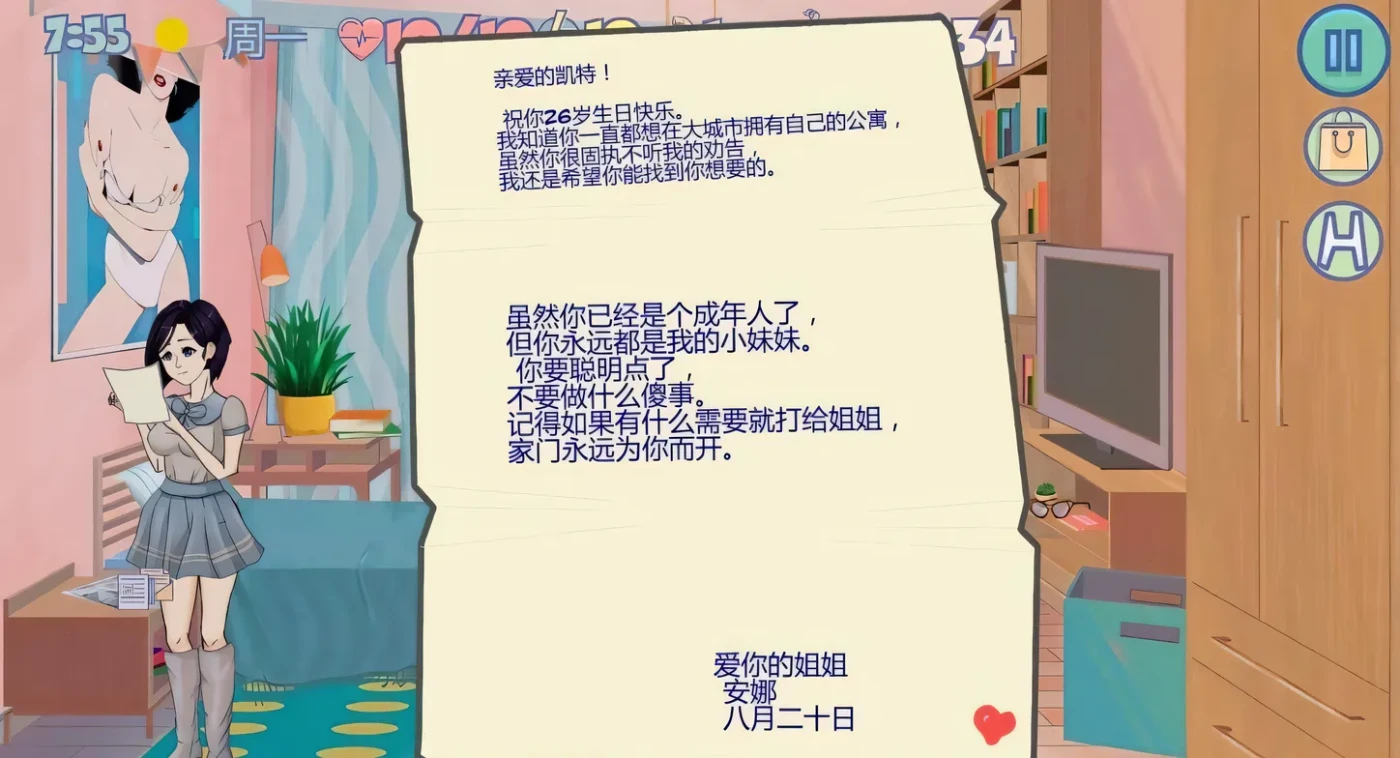 7:55
周一
34
亲爱的凯特！
祝你26岁生日快乐。
我知道你一直都想在大城市拥有自己的公寓，
虽然你很固执不听我的劝告，
我还是希望你能找到你想要的。
虽然你已经是个成年人了，
但你永远都是我的小妹妹。
你要聪明点了，
不要做什么傻事。
记得如果有什么需要就打给姐姐，
家门永远为你而开。
爱你的姐姐
安娜
八月二十日